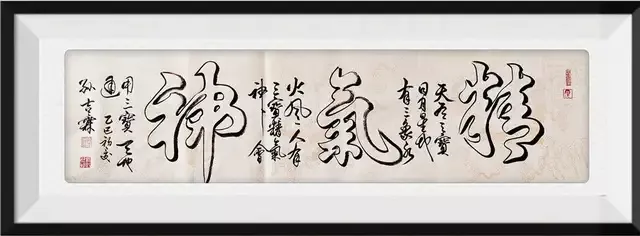 精
天有三寶
日月星地
有三象水
氣
火風人有
三寶精氣
神會
神
用三寶天地
通 乙巳
孙吉霖